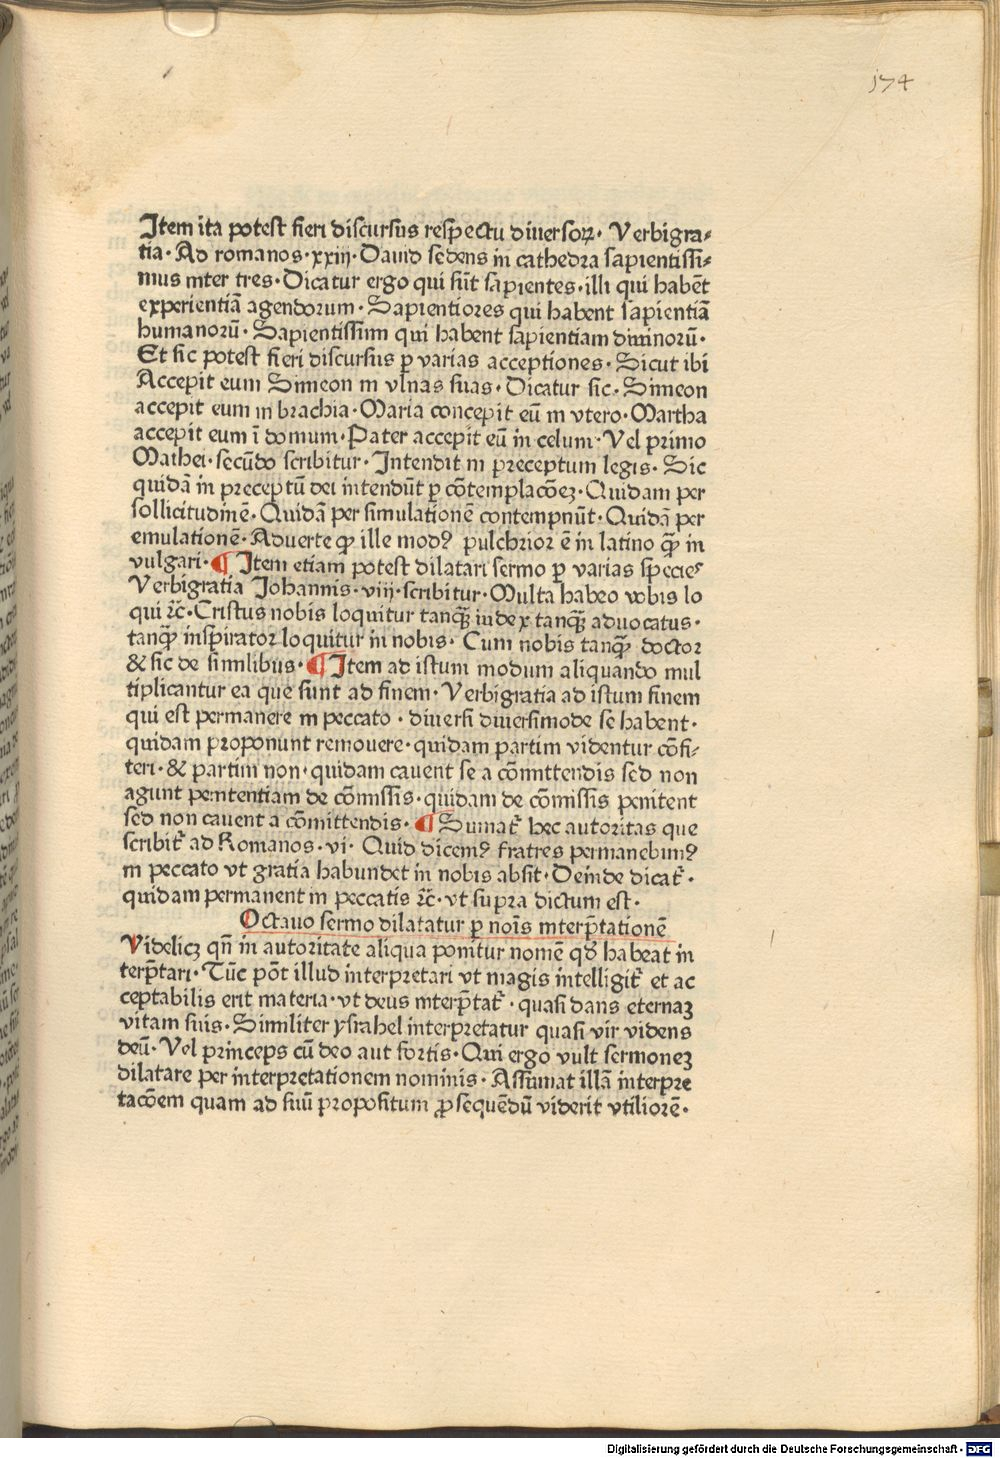 174
Item ita potest fieri discursus respectu diuersoꝝ. Verbigra⸗
tia. Ad romanos. xxiij. Dauid sedens in cathedra sapientissi⸗
mus inter tres. Dicatur ergo qui sūt sapientes. illi qui habēt
experientiā agendorum. Sapientiores qui habent sapientiā
humanorū. Sapientissimi qui habent sapientiam diuinorū.
Et sic potest fieri discursus ꝑ varias acceptiones. Sicut ibi
Accepit eum Simeon in vlnas suas. Dicatur sic. Simeon
accepit eum in brachia. Maria concepit eū in vtero. Martha
accepit eum ī domum. Pater accepit eū in celum. Vel primo
Mathei. secūdo scribitur. Intendit in preceptum legis. Sic
quidā in preceptū dei intendūt ꝑ cōtemplacōeꝫ. Quidam per
sollicitudinē. Quidā per simulationē contempnūt. Quidā per
emulationē. Aduerte ꝙ ille modꝰ pulchrior ē in latino ꝙ̄ in
vulgari. ¶ Item etiam potest dilatari sermo ꝑ varias species
Verbigratia Johannis. viij. scribitur. Multa habeo vobis lo
qui ꝛc̄. Cristus nobis loquitur tanꝙ̄ iudex tanꝙ̄ aduocatus.
tanꝙ̄ inspirator loquitur in nobis. Cum nobis tanꝙ̄ doctor
& sic de similibus. ¶ Item ad istum modum aliquando mul
tiplicantur ea que sunt ad finem. Verbigratia ad istum finem
qui est permanere in peccato. diuersi diuersimode se habent.
quidam proponunt remouere. quidam partim videntur cōfi⸗
teri. & partim non. quidam cauent se a cōmittendis sed non
agunt penitentiam de cōmissis. quidam de cōmissis penitent
sed non cauent a cōmittendis. ¶ Sumat᷑ hec autoritas que
scribit᷑ ad Romanos. vi. Quid dicemꝰ fratres permanebimꝰ
in peccato vt gratia habundet in nobis absit. Deinde dicat᷑.
quidam permanent in peccatis ꝛc̄. vt supra dictum est.
Octauo sermo dilatatur ꝑ noīs interp̄tationē
Videlicꝫ qn̄ in autoritate aliqua ponitur nomē qd̄ habeat in
terp̄tari. Tūc pōt illud interpretari vt magis intelligit᷑ et ac
ceptabilis erit materia. vt deus interp̄tat᷑. quasi dans eternaꝫ
vitam suis. Similiter ysrahel interpretatur quasi vir videns
deū. Vel princeps cū deo aut fortis. Qui ergo vult sermoneꝫ
dilatare per interpretationem nominis. Assumat illā interpre
tacōem quam ad suū propositum ꝓsequēdū viderit vtiliorē.
Digitalisierung gefördert durch die Deutsche Forschungsgemeinschaft - DFG